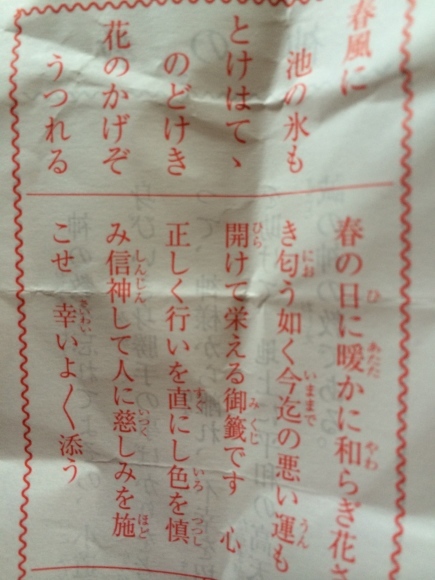 春風に
池の氷も
とけはてゝ
のどけき
花のかげぞ
うつれる
春の日に暖かに和らぎ花さ
き匂う如く今迄の悪い運も
開けて栄える御籤です 心
正しく行いを直にし色を慎
み信神して人に慈しみを施
こせ 幸いよく添う